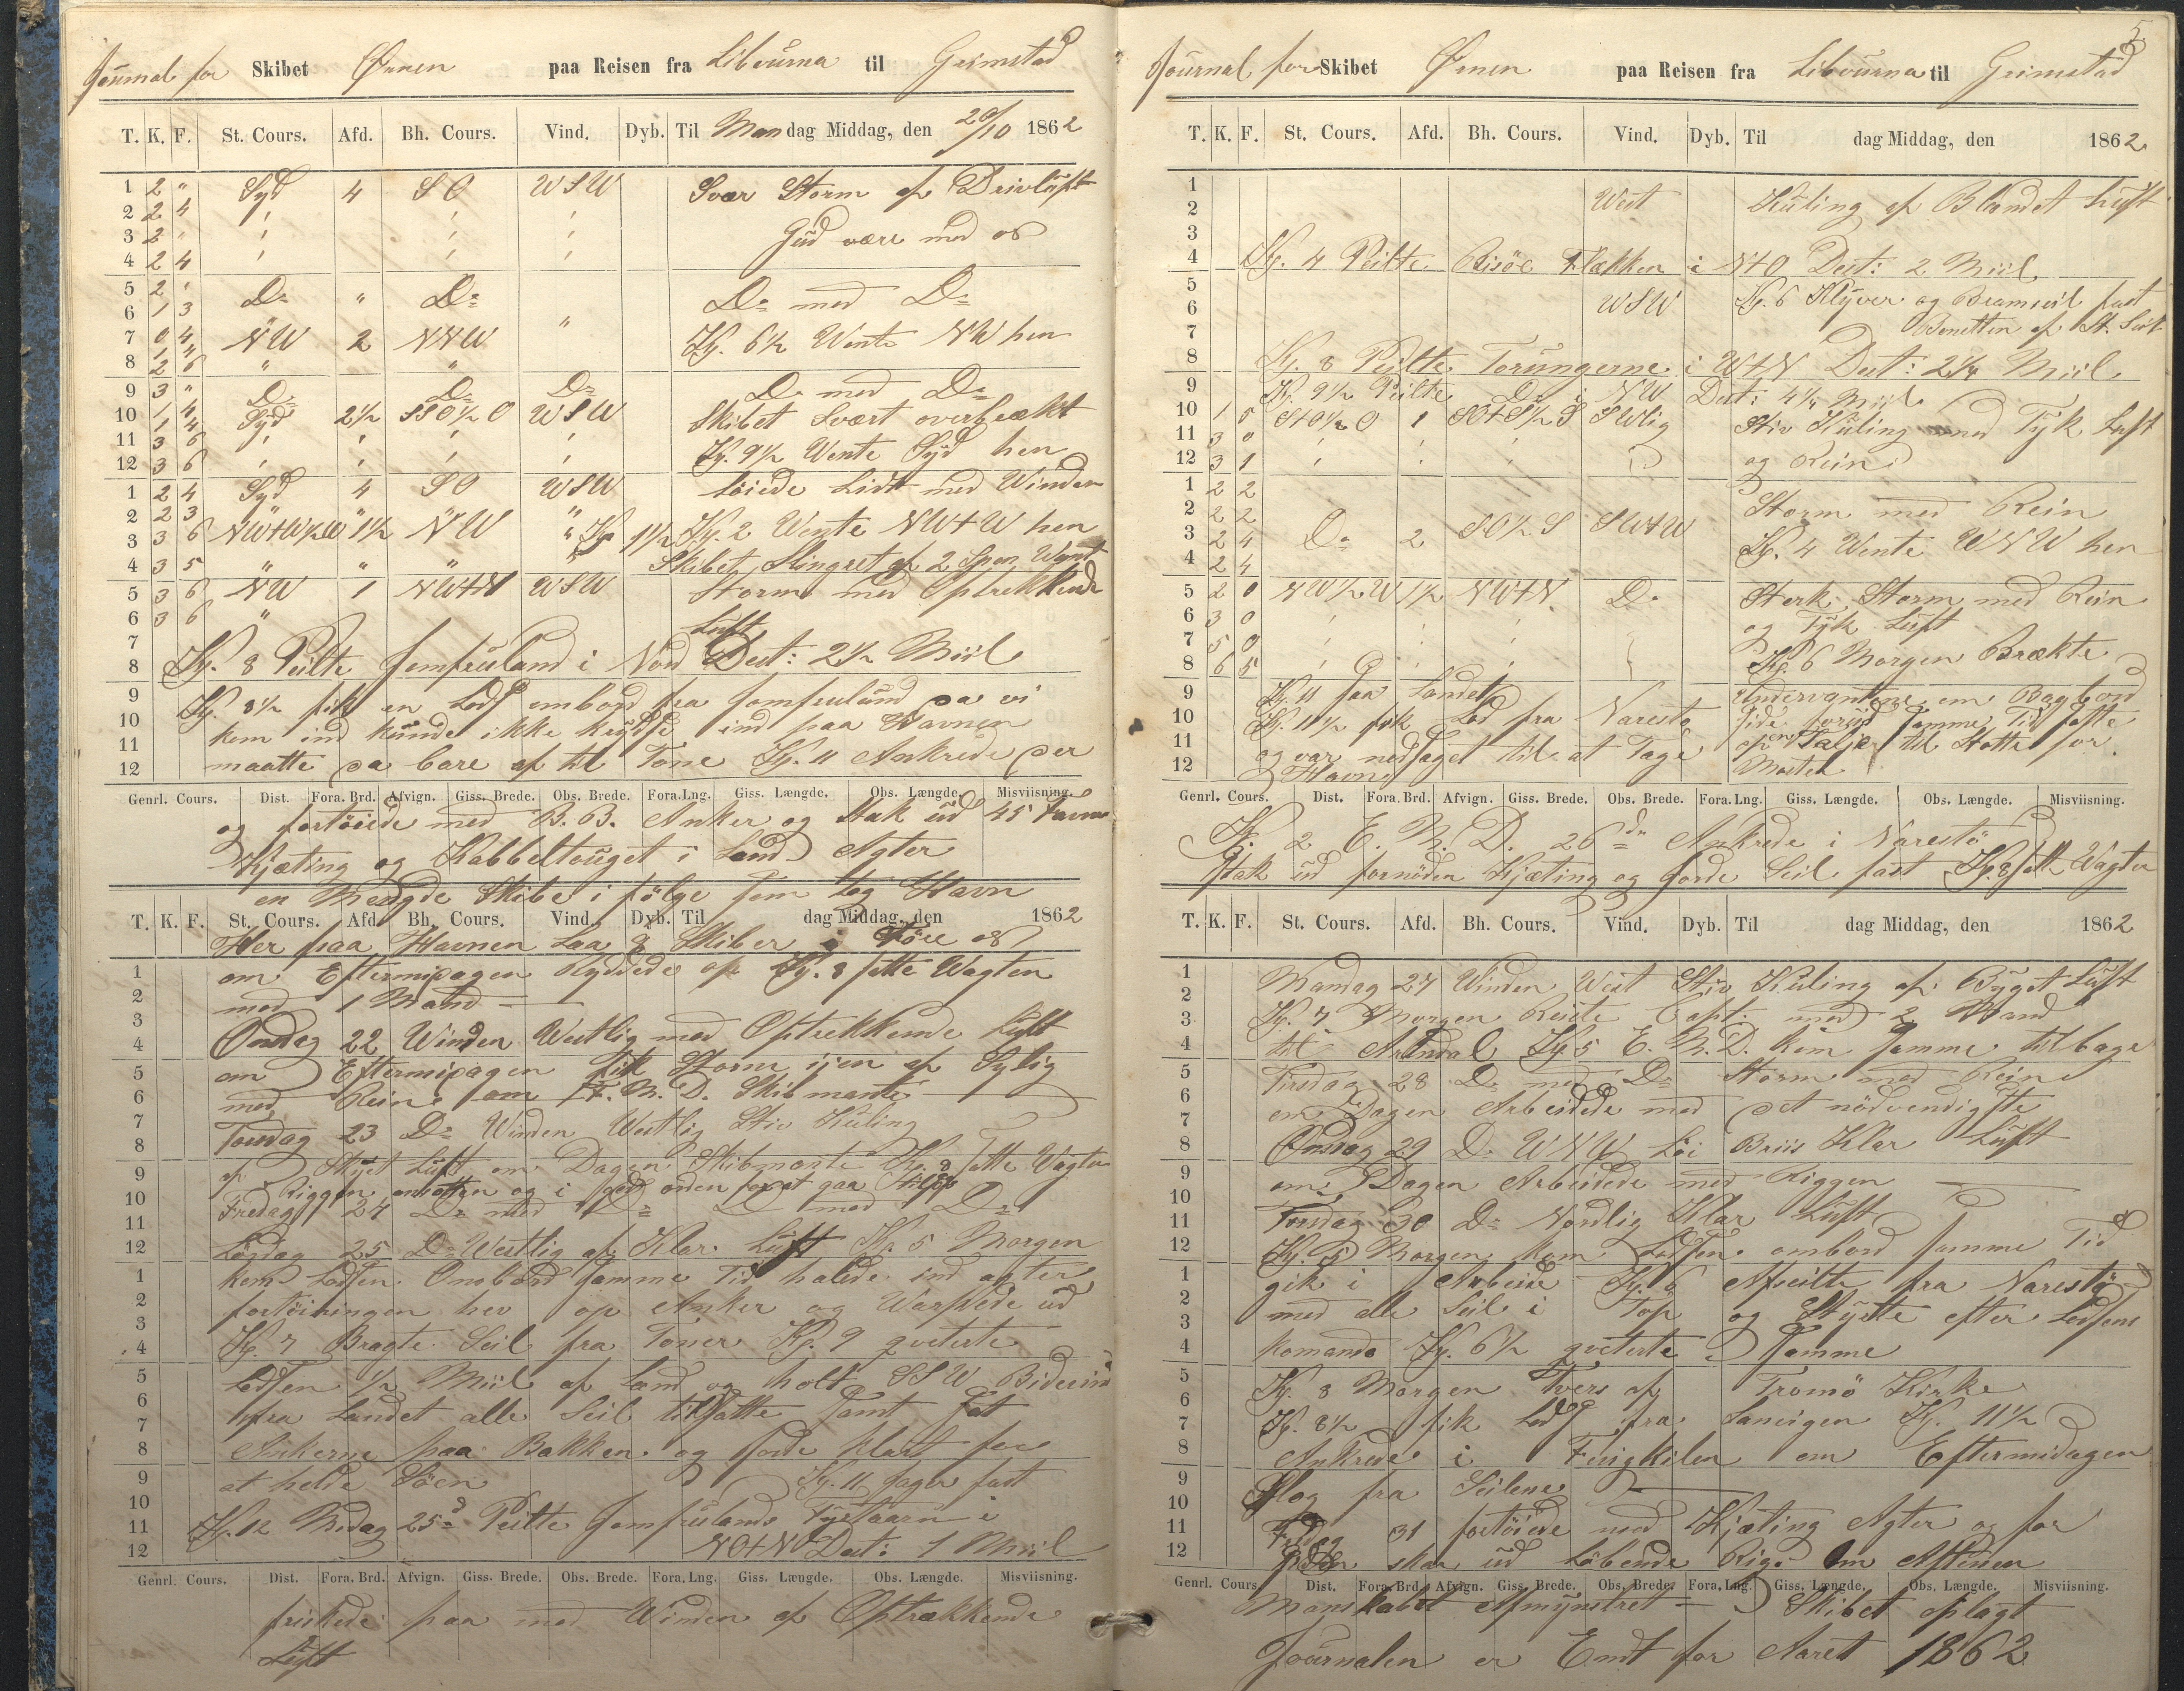 Journal for Skibet Ørnen paa Reisen fra Libourna til Grimstad
T. K. F. St. Cours. Afd. Bh. Cours. Vind. Dyb. Til Mandag Middag, den 20/10 1862
1 2 " Syd 4 SO WSW Svær Storm af Drivluft
2 2 4
3 2 Gud være med os
4 2 4
5 2 Do " Do Do med Do
6 1 3
7 0 4 NW 2 NNW " Kl. 6½ Wente NW hen
1 4
8 2 6 " "
9 3 " Do Do Do Do med Do
10 1 4 Syd 2½ SSO½O WSW Skibet Svært overbrækt
1 4
11 3 6 Kl. 9½ Wente Syd hen
12 3 6
1 2 4 Syd 4 SO WSW Løiede Lidt med Winden
2 2 3 " " "
3 3 6 NW+W½W 1½ NW " Kl. 2 Wente NW+W hen
4 3 5 " " " Skibet Slingret af 2 Spor Want
5 3 6 NW 1 NW+N WSW Storm med Optrekkende
6 3 6 " Luft
7
8 Kl. 8 Peilte Jomfruland i Nord Dest: 2½ Miil
9 Kl. 8½ fik en Lods ombord fra Jomfruland da vi
10 kom ind kunde ikke krydse ind paa Havnen
11 maatte da bare af til Tone Kl. 11 Ankrede der
12
Genrl. Cours. Dist. Fora. Brd. Afvign. Giss. Brede. Obs. Brede. Fora. Lng. Giss. Længde. Obs. Længde. Misviisning.
og fortøiede med B.B. Anker og Stak ud 45 Favne
Kjæting og Kabbeltouget i Land Agter
en Mengde Skibe i følge som tog Havn
T. K. F. St. Cours. Afd. Bh. Cours. Vind. Dyb. Til dag Middag, den 1862
Her paa Havnen Laa 8 Skiber i Føre os
1 om Eftermidagen Ryddede op Kl. 8 satte Wagten
2 med 1 Mand
3 Onsdag 22 Winden Westlig med Optrekkende Luft
4
5 om Eftermidagen fik Storm igen af Sylig
6 med Rein om F.M.D. Skibmante
7 Torsdag 23 Do Winden Westlig Stiv Kuling
8
9 af Skyet Luft om Dagen Skibmante Kl. 8 satte Wagten
10 Riggen ansatten og i god orden for at gaa
Fredag 24 Do med Do Do med Do
11
12 Lørdag 25 Do Westlig af Klar Luft Kl. 5 Morgen
1 kom Lodsen Ombord samme Tid halede ind agter
2 fortøiningen hev op Anker og Warpede ud
3
4 Kl. 7 Bragte Seil fra Toner Kl. 9 qveterte
5 Lodsen ½ Miil af Land og holt SSW Bidevind
6 fra Landet alle Seil tilsatte Samt Sat
7
8 Ankerne paa Bakken og Gorde klart for
9 at helde Søen Kl. 11 gager fast
10
11 Kl. 12 Midag 25d Peilte Jomfrulands Fyrtaarn i
12 NO+N Dest: 1 Miil
Genrl. Cours. Dist. Fora. Brd. Afvign. Giss. Brede. Obs. Brede. Fora. Lng. Giss. Længde. Obs. Længde. Misviisning.
friskede paa med Winden af Optrækkende
Luft
5
Journal for Skibet Ørnen paa Reisen fra Libourna til Grimstad
T. K. F. St. Cours. Afd. Bh. Cours. Vind. Dyb. Til dag Middag, den 1862
1 West Kuling af Blandet Luft
2
3
4 Kl. 4 Peilte Risöe Flækken i N+O Dest: 2 Miil
5
6 WSW Kl. 6 Klyver og Bramseil fast
7 Bonetten af St. Seil
8 Kl. 8 Peilte Torungerne i W+N Dest: 2¼ Miil
9 Kl. 9½ Peilte Do i NW Dest: 4¼ Miil
10 1 0 S+O½O 1 SO+S½S SWlig Stiv Kuling med Tyk Luft
11 3 0
12 3 1 og Rein
1 2 2 Storm med Rein
2 2 2
3 2 4 Do 2 SO½S SW+W
4 2 4 Kl. 4 Wente WNW hen
5 2 0 NW½W 1½ NW+N Do Sterk Storm med Rein
6 3 0 og Tyk Luft
7 5 0
8 6 5 Kl. 6 Morgen Brækte
9 Kl. 11 paa Landet Undervantene om Bagbord
10 Kl. 11½ fik Lod fra Narestø Side forud samme Tid satte
11 og var nødsaget til at Tage op en Talje til Støtte for
12 Havn Masten
Genrl. Cours. Dist. Fora. Brd. Afvign. Giss. Brede. Obs. Brede. Fora. Lng. Giss. Længde. Obs. Længde. Misviisning.
Kl. 2 E.M.D. 26de Ankrede i Narestø
Stak ud fornøden Kjæting og Gorde Seil fast Kl. 8 satt Wagten
T. K. F. St. Cours. Afd. Bh. Cours. Vind. Dyb. Til dag Middag, den 1862
1 Mandag 27 Winden West Stiv Kuling af Byget Luft
2
3 Kl. 7 Morgen Reiste Capt. med 2 Mand
4 til Arendal Kl. 5 E.M.D. kom samme tilbage
5 Tirsdag 28 Do med Do Storm med Rein
6 om Dagen Arbeidede med det nödvendigste
7
8 Onsdag 29 Do WNW Löi Briis Klar Luft
9 om Dagen Arbeidede med Riggen
10
11 Torsdag 30 Do Nordlig Klar Luft
12 Kl. 5 Morgen kom Lodsen ombord samme Tid
1 gik i Arbeide Kl. 6 Afseilte fra Narestø
2 med alle Seil i Top og Styrte efter Lodsens
3
4 komando Kl. 6½ qveterte Samme
5
6 Kl. 8 Morgen Tvers af Tromö Kirke
7 Kl. 8½ fik Lods fra Sanvigen Kl. 11½
8 Ankrede i Fingkilen om Eftermidagen
9 Slog fra Seilene
10
11 31 fortöiede med Kjæting Agter og for
12 skar ud Löbende Rigg Om Aftenen
Genrl. Cours. Dist. Fora. Brd. Afvign. Giss. Brede. Obs. Brede. Fora. Lng. Giss. Længde. Obs. Længde. Misviisning.
Manskabet Afmynstret Skibet oplagt
Journalen er Endt for Aaret 1862